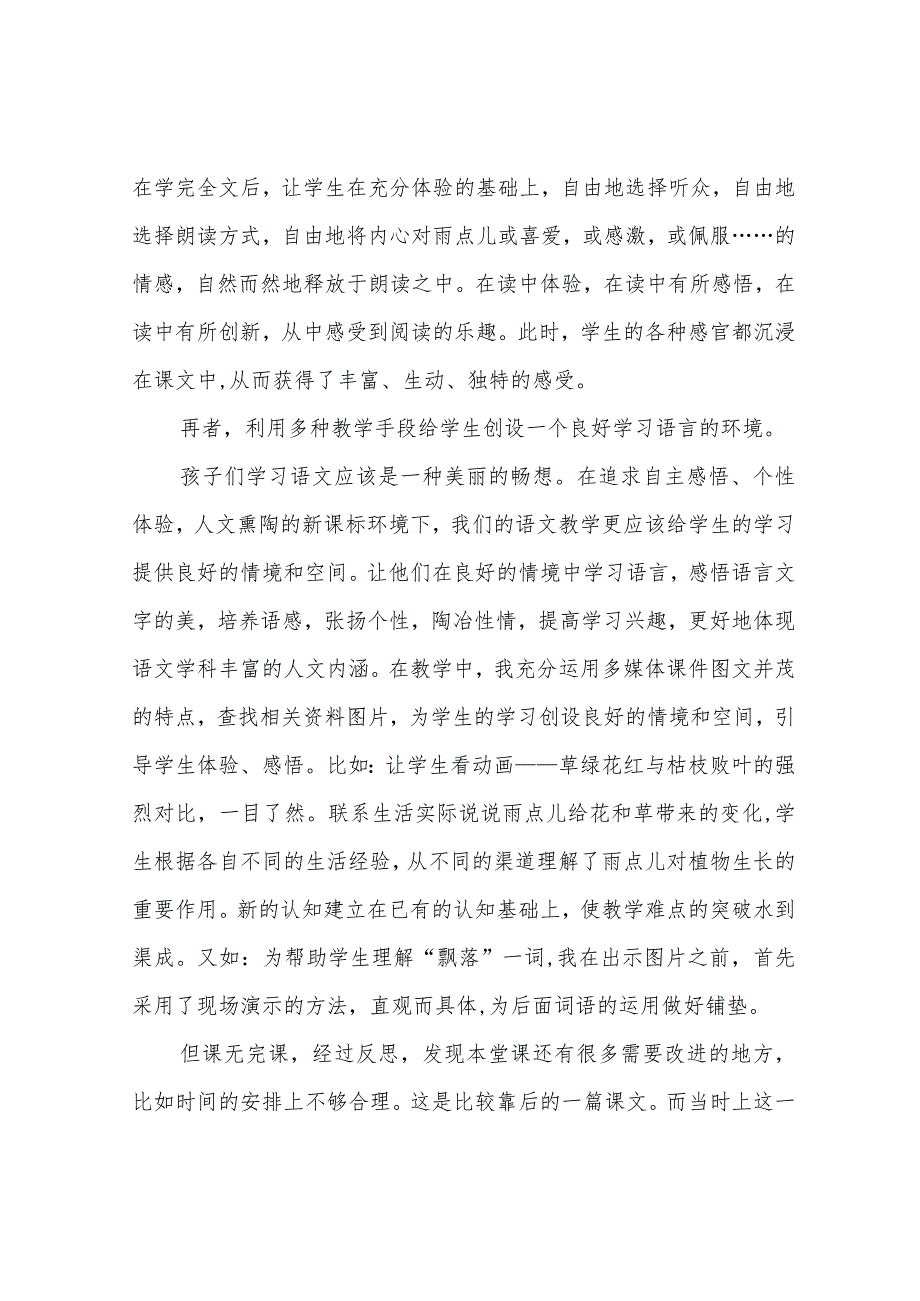 在学完全文后，让学生在充分体验的基础上，自由地选择听众，自由地
选择朗读方式，自由地将内心对雨点儿或喜爱，或感激，或佩服……的
情感，自然而然地释放于朗读之中。在读中体验，在读中有所感悟，在
读中有所创新，从中感受到阅读的乐趣。此时，学生的各种感官都沉浸
在课文中,从而获得了丰富、生动、独特的感受。
再者，利用多种教学手段给学生创设一个良好学习语言的环境。
孩子们学习语文应该是一种美丽的畅想。在追求自主感悟、个性
体验，人文熏陶的新课标环境下，我们的语文教学更应该给学生的学习
提供良好的情境和空间。让他们在良好的情境中学习语言，感悟语言文
字的美，培养语感，张扬个性，陶冶性情，提高学习兴趣，更好地体现
语文学科丰富的人文内涵。在教学中，我充分运用多媒体课件图文并茂
的特点，查找相关资料图片，为学生的学习创设良好的情境和空间，引
导学生体验、感悟。比如：让学生看动画——草绿花红与枯枝败叶的强
烈对比，一目了然。联系生活实际说说雨点儿给花和草带来的变化,学
生根据各自不同的生活经验，从不同的渠道理解了雨点儿对植物生长的
重要作用。新的认知建立在已有的认知基础上，使教学难点的突破水到
渠成。又如：为帮助学生理解“飘落”一词,我在出示图片之前，首先
采用了现场演示的方法，直观而具体,为后面词语的运用做好铺垫。
但课无完课，经过反思，发现本堂课还有很多需要改进的地方，
比如时间的安排上不够合理。这是比较靠后的一篇课文。而当时上这一